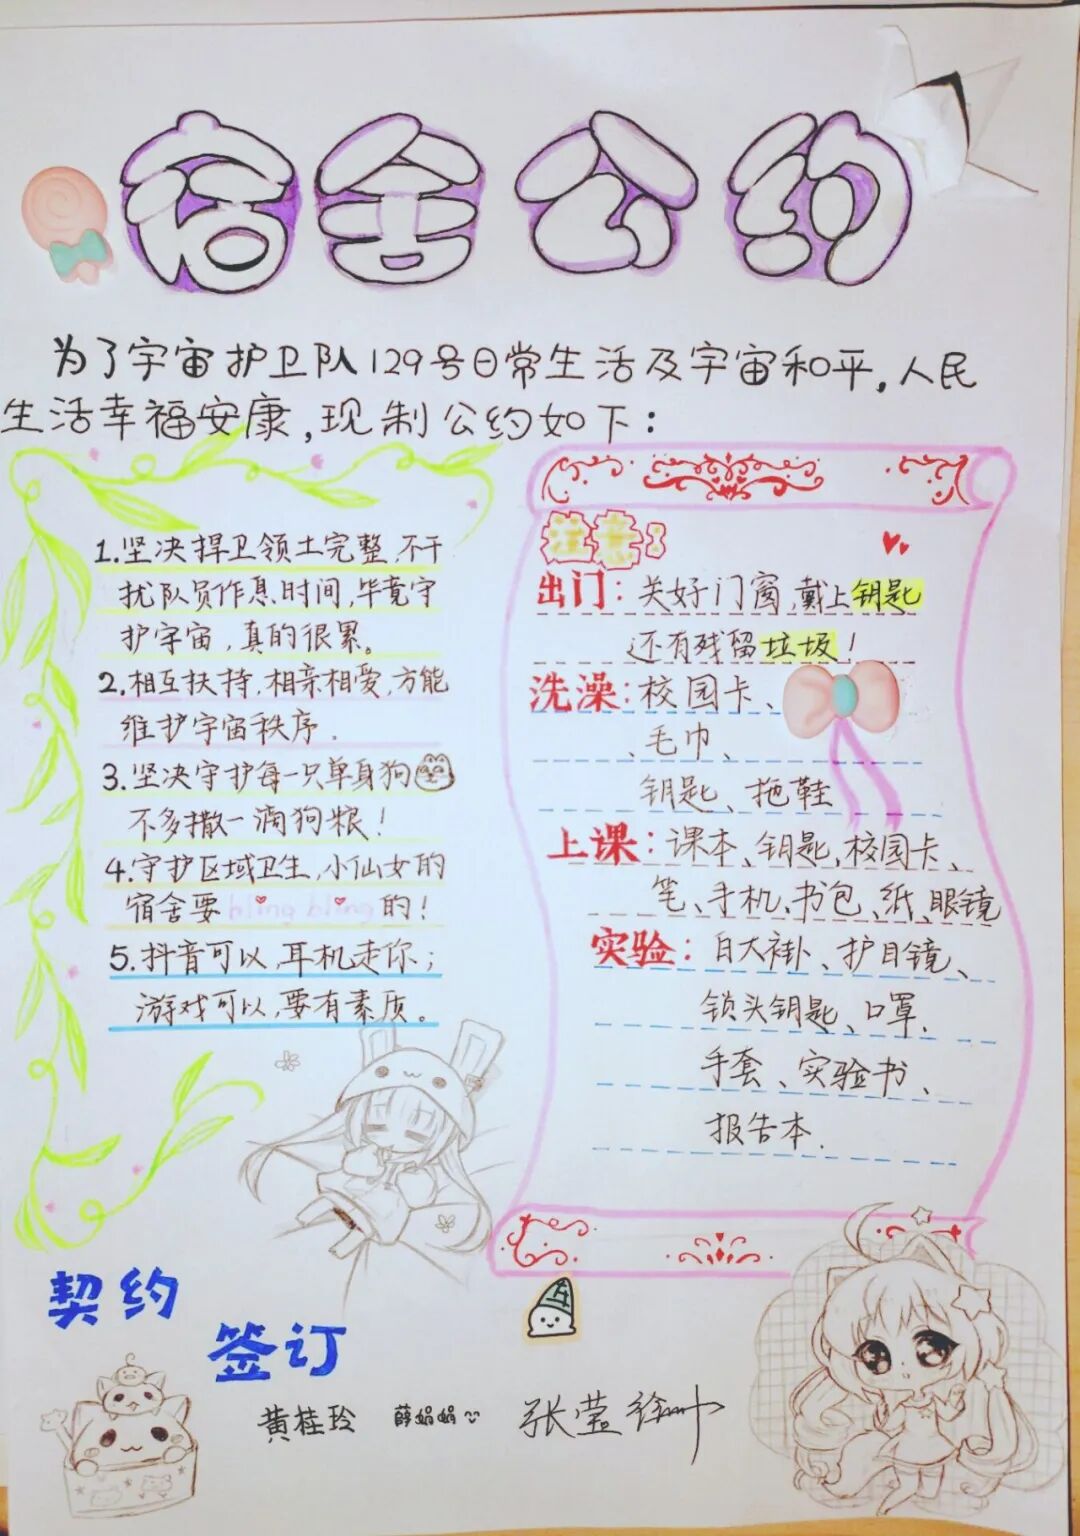 宿舍公约
为了宇宙护卫队129号日常生活及宇宙和平,人民
生活幸福安康,现制公约如下:
1.坚决捍卫领土完整,不干
扰队员作息时间,毕竟守
护宇宙,真的很累。
2.相互扶持,相亲相爱,方能
维护宇宙秩序.
3.坚决守护每一只单身狗
不多撒一滴狗粮!
4.守护区域卫生,小仙女的
宿舍要bling bling的!
5.抖音可以,耳机走你;
游戏可以,要有素质。
注意:
出门:关好门窗,戴上钥匙
还有残留垃圾!
洗澡:校园卡、
、毛巾、
钥匙、拖鞋
上课:课本、钥匙,校园卡、
笔、手机,书包、纸、眼镜
实验:白大褂、护目镜、
锁头钥匙、口罩.
手套、实验书、
报告本.
契约
签订
黄桂玲 薛娟娟 张莹